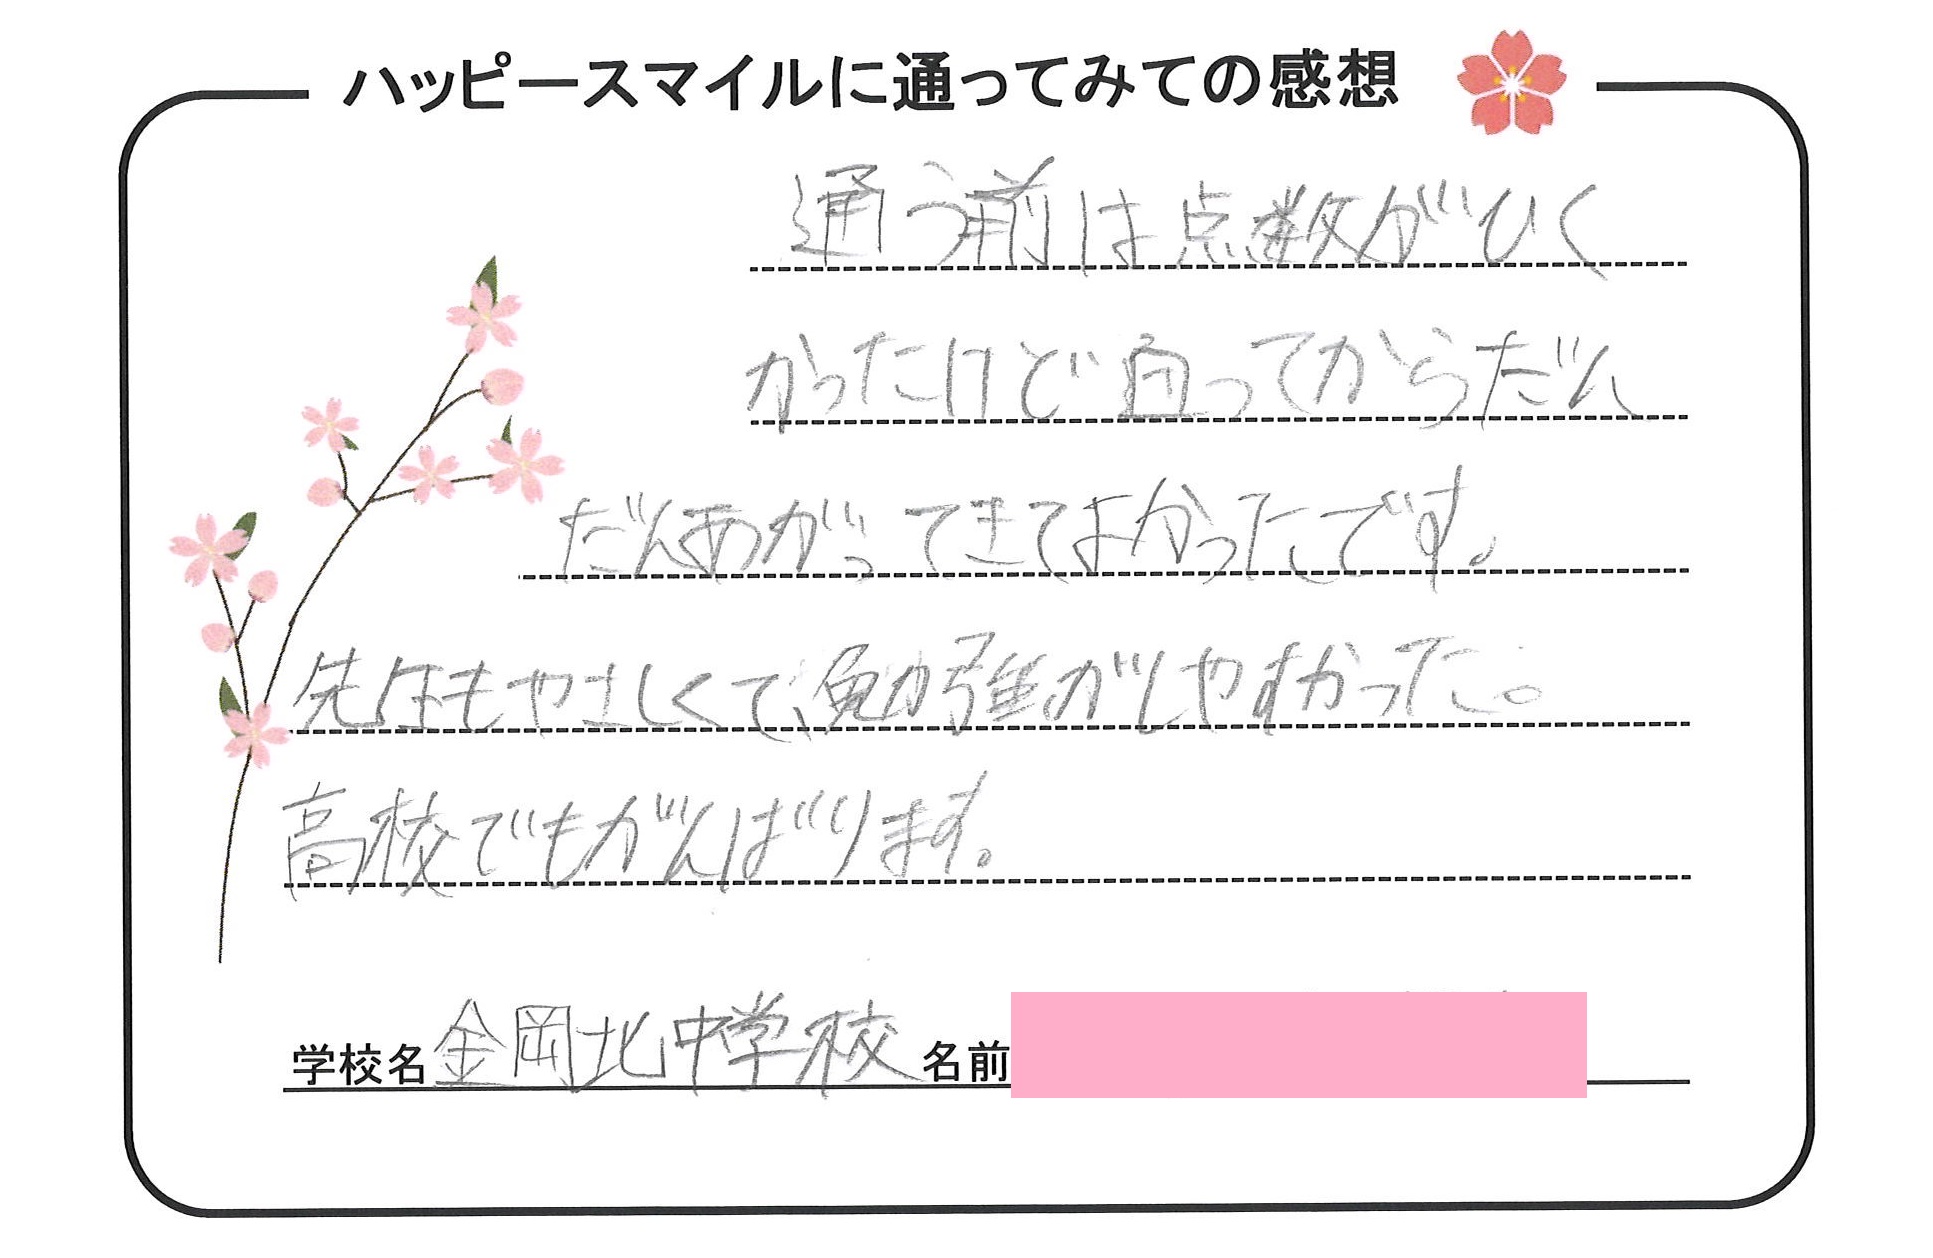 ハッピースマイルに通ってみての感想
通う前は点数がひく
かったけど通ってからだん
だんあがってきてよかったです。
先生もやさしくて、勉強がしやすかった。
高校でもがんばります。
学校名 金岡北中学校 名前